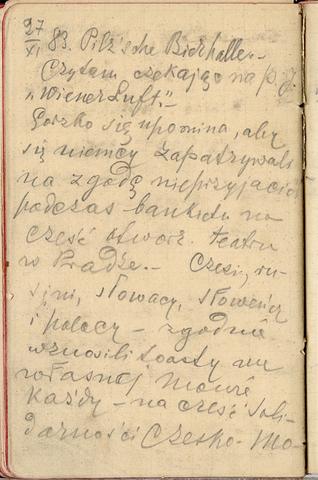 27/XI 83. Pilz'sche Bierhalle.-
Czytam czekając na p. J.
„Wiener Luft".-
Gorzko się upomina, aby
się niemcy zapatrywali
na zgodę nieprzyjaciół
podczas bankietu na
cześć otworz. teatru
w Pradze.- Czesi, ru-
sini, słowacy, słoweńcy
i polacy - zgodnie
wznosili toasty we
własnej mowie
każdy - na cześć soli-
darności Czesko-Mo-